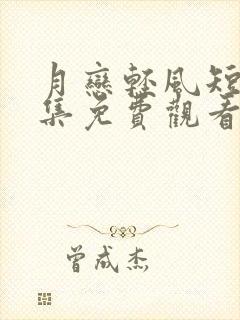 月戀輕風短
集免費觀看
曾成杰